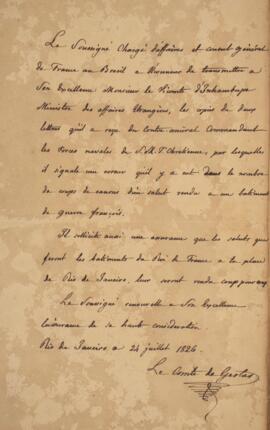 Le Soussigné Chargé d'affaires et consul général
de France au Bresil a l'honneur de transmettre a
Son Excellence Monsieur le Vicomte d'Inhambupe
Ministre des affaires Etrangères, les copies de deux
lettres qu'il a reçu du Contre amiral Commandant
les forces navales de S. M. T. Chretienne, par lesquelles
il signale une erreur qu'il y a eut dans le nombre
de coups de canons d'un salut rendu a un batiment
de guerre françois.
Il sollicite aussi une assurance que les saluts que
feront les batiments du Roi de France a la place
de Rio de Janeiro, leur seront rendu coup pour coup
Le Soussigné renouvelle a Son Excellence
l'assurance de sa haute considération
Rio de Janeiro a 24 juillet 1826.
Le Comte de Gestas